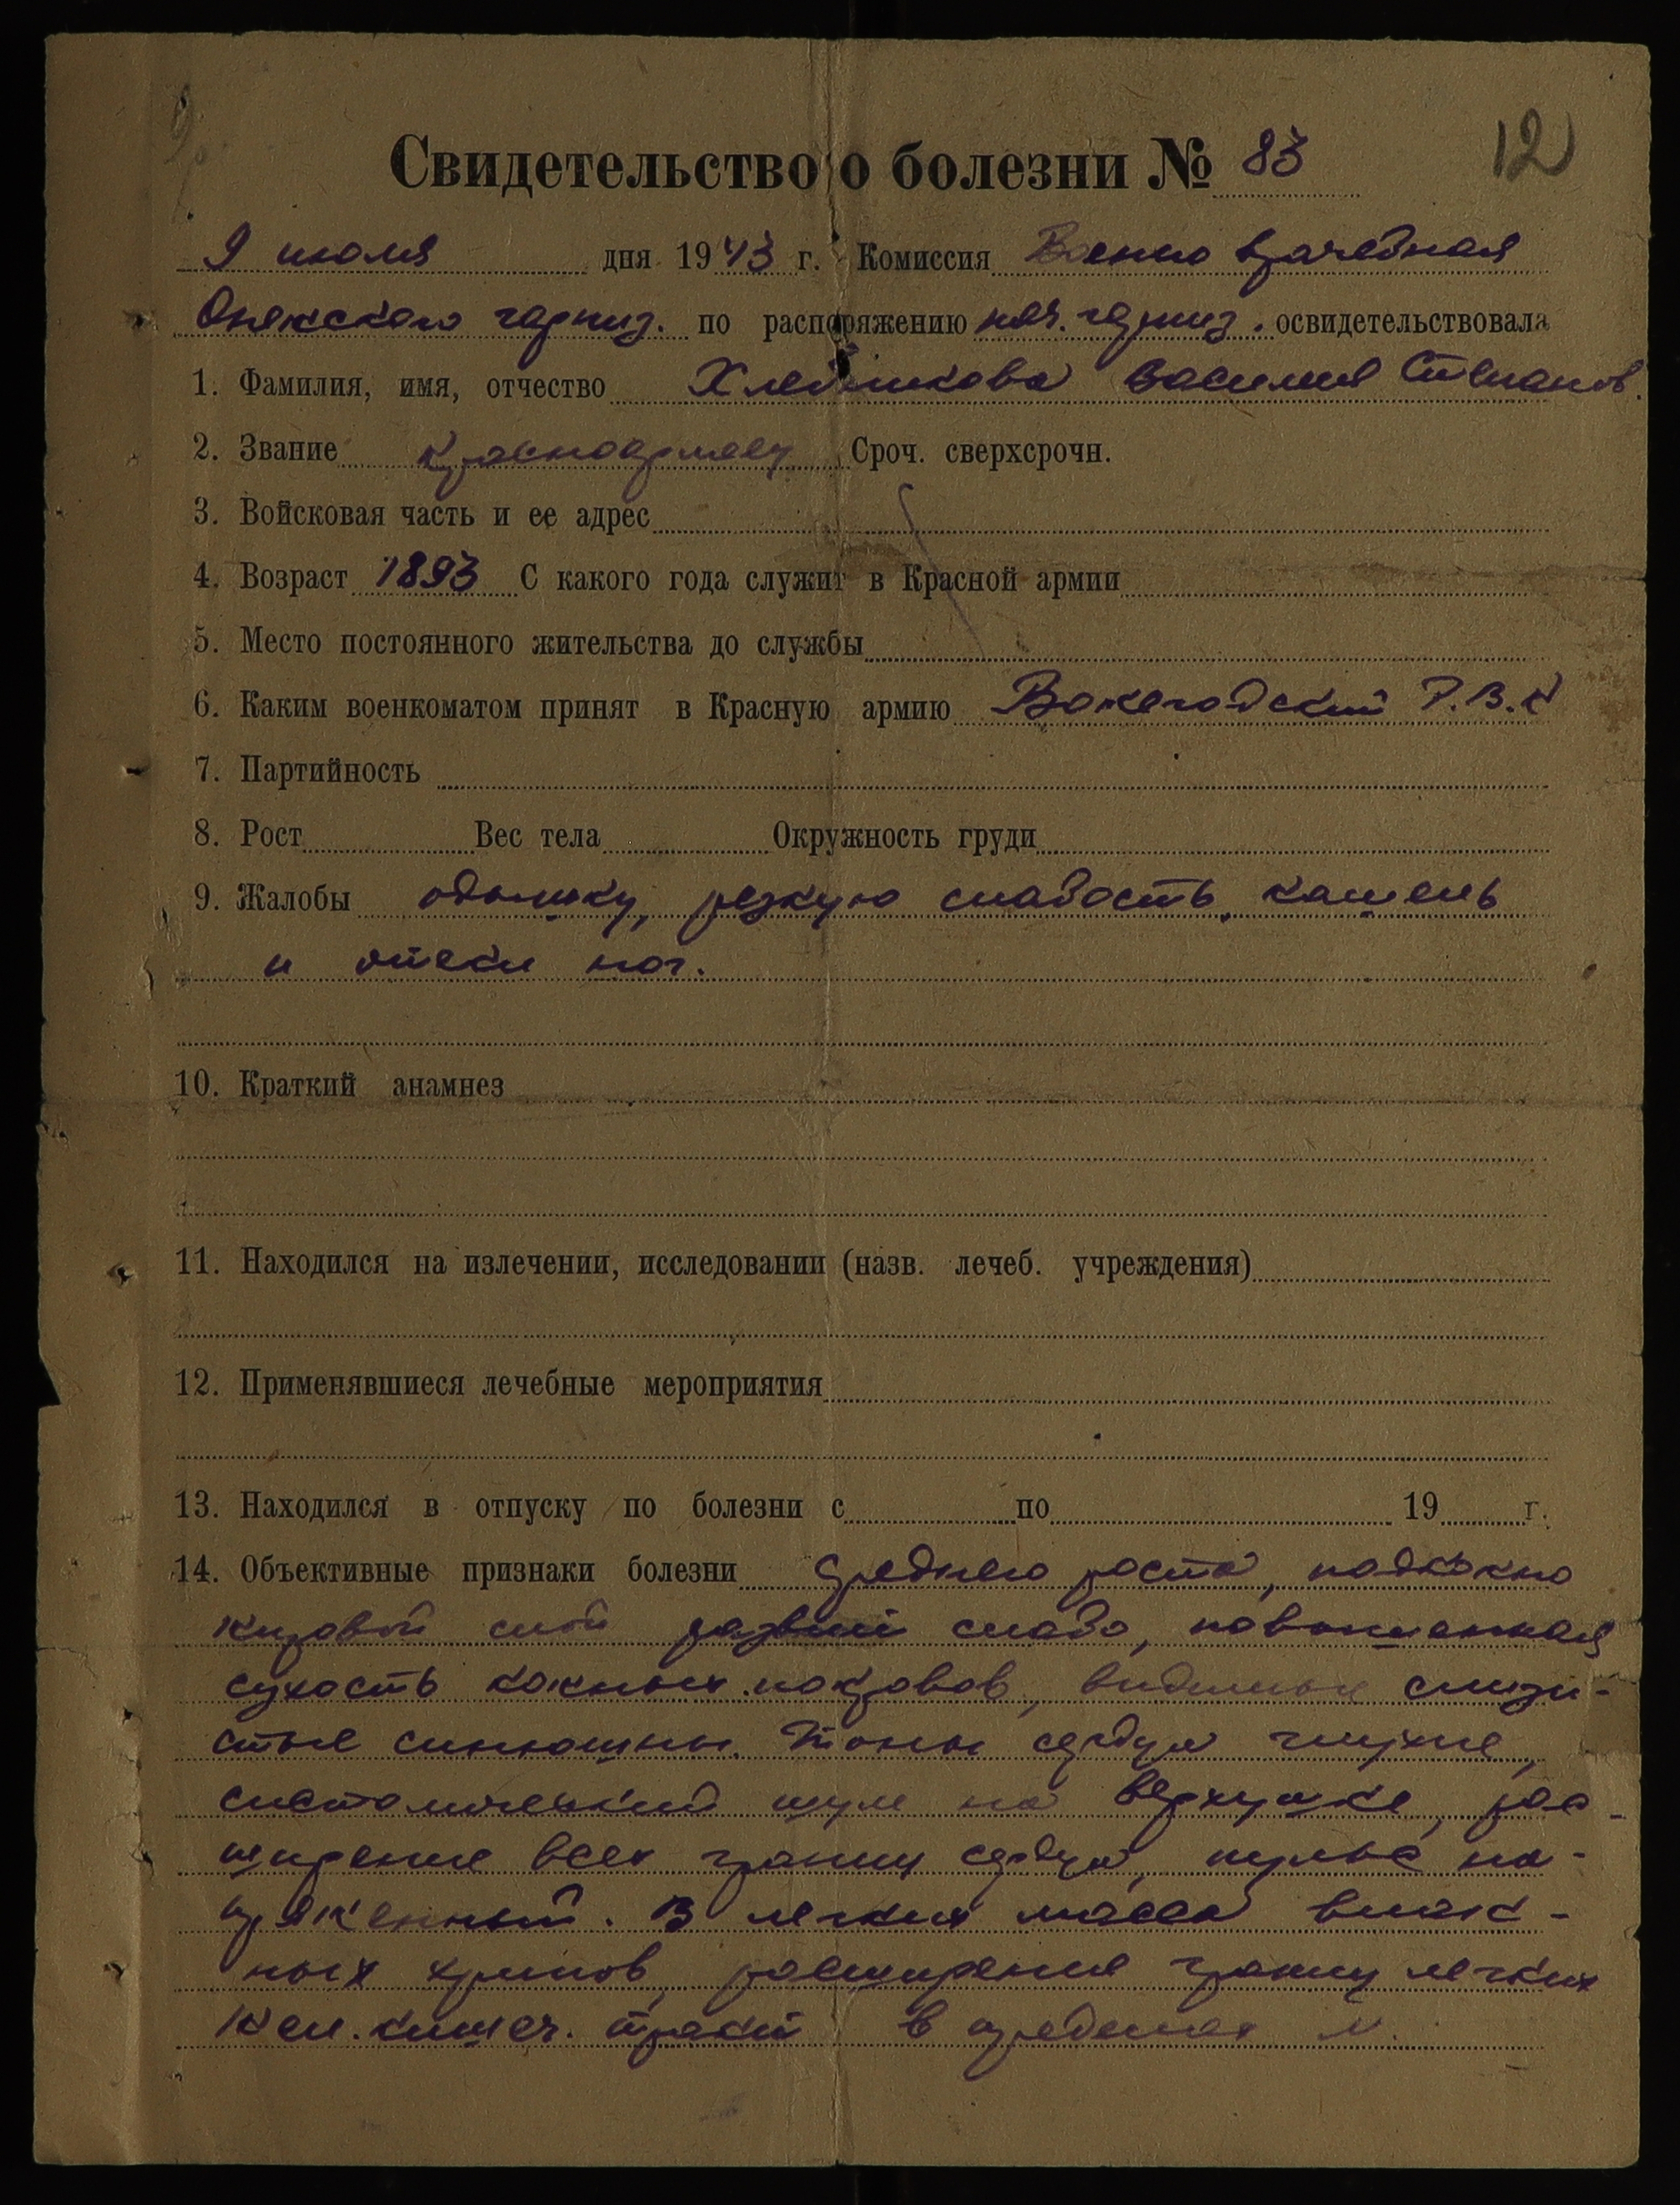 12
Свидетельство о болезни № 83
9 июля дня 1943 г. Комиссия Военно врачебная
Онежского гарниз. по распоряжению нач. гарниз. освидетельствовала
1. Фамилия, имя, отчество Василия Степанов.
2. Звание красноармеец Сроч. сверхсрочн.
3. Войсковая часть и ее адрес
4. Возраст 1893 С какого года служит в Красной армии
5. Место постоянного жительства до службы
6. Каким военкоматом принят в Красную армию Вожегодский Р.В.К
7. Партийность
8. Рост Вес тела Окружность груди
9. Жалобы одышку, резкую слабость, кашель
и отеки ног.
10. Краткий анамнез
11. Находился на излечении, исследовании (назв. лечеб. учреждения)
12. Применявшиеся лечебные мероприятия
13. Находился в отпуску по болезни с по 19 г.
14. Объективные признаки болезни Среднего роста, подкожно
жировой слой развит слабо, повышенная
сухость кожных покровов, видимые слизи-
стые синюшны. Тоны сердца глухие,
систолический шум на верхушке, рас-
ширение всех границ сердца, пульс на-
пряженный. В легких масса влаж-
ных хрипов, расширение границ легких
Жел. кишеч. тракт в пределах N.